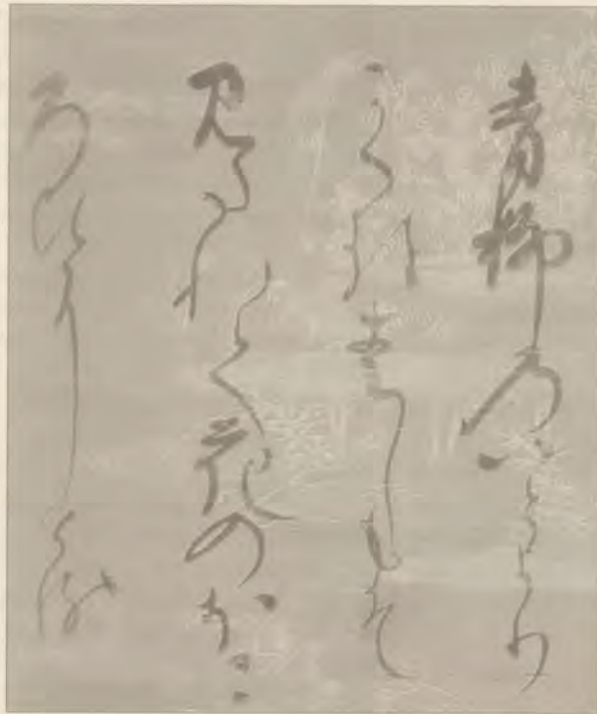 青柳のいとより
くる春しもそ
見たれて花のほこ
ろひにける